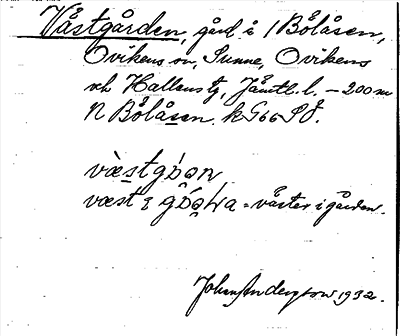 Västgården, gård i Bölåsen,
Ovikens sn, Sunne, Ovikens
och Hallens tg, Jämtl. l. – 200 m
N Bölåsen. kG66SÖ.
væstgɔ́ɑn
væst i = väster i gården.
Johan Anderson 1932.